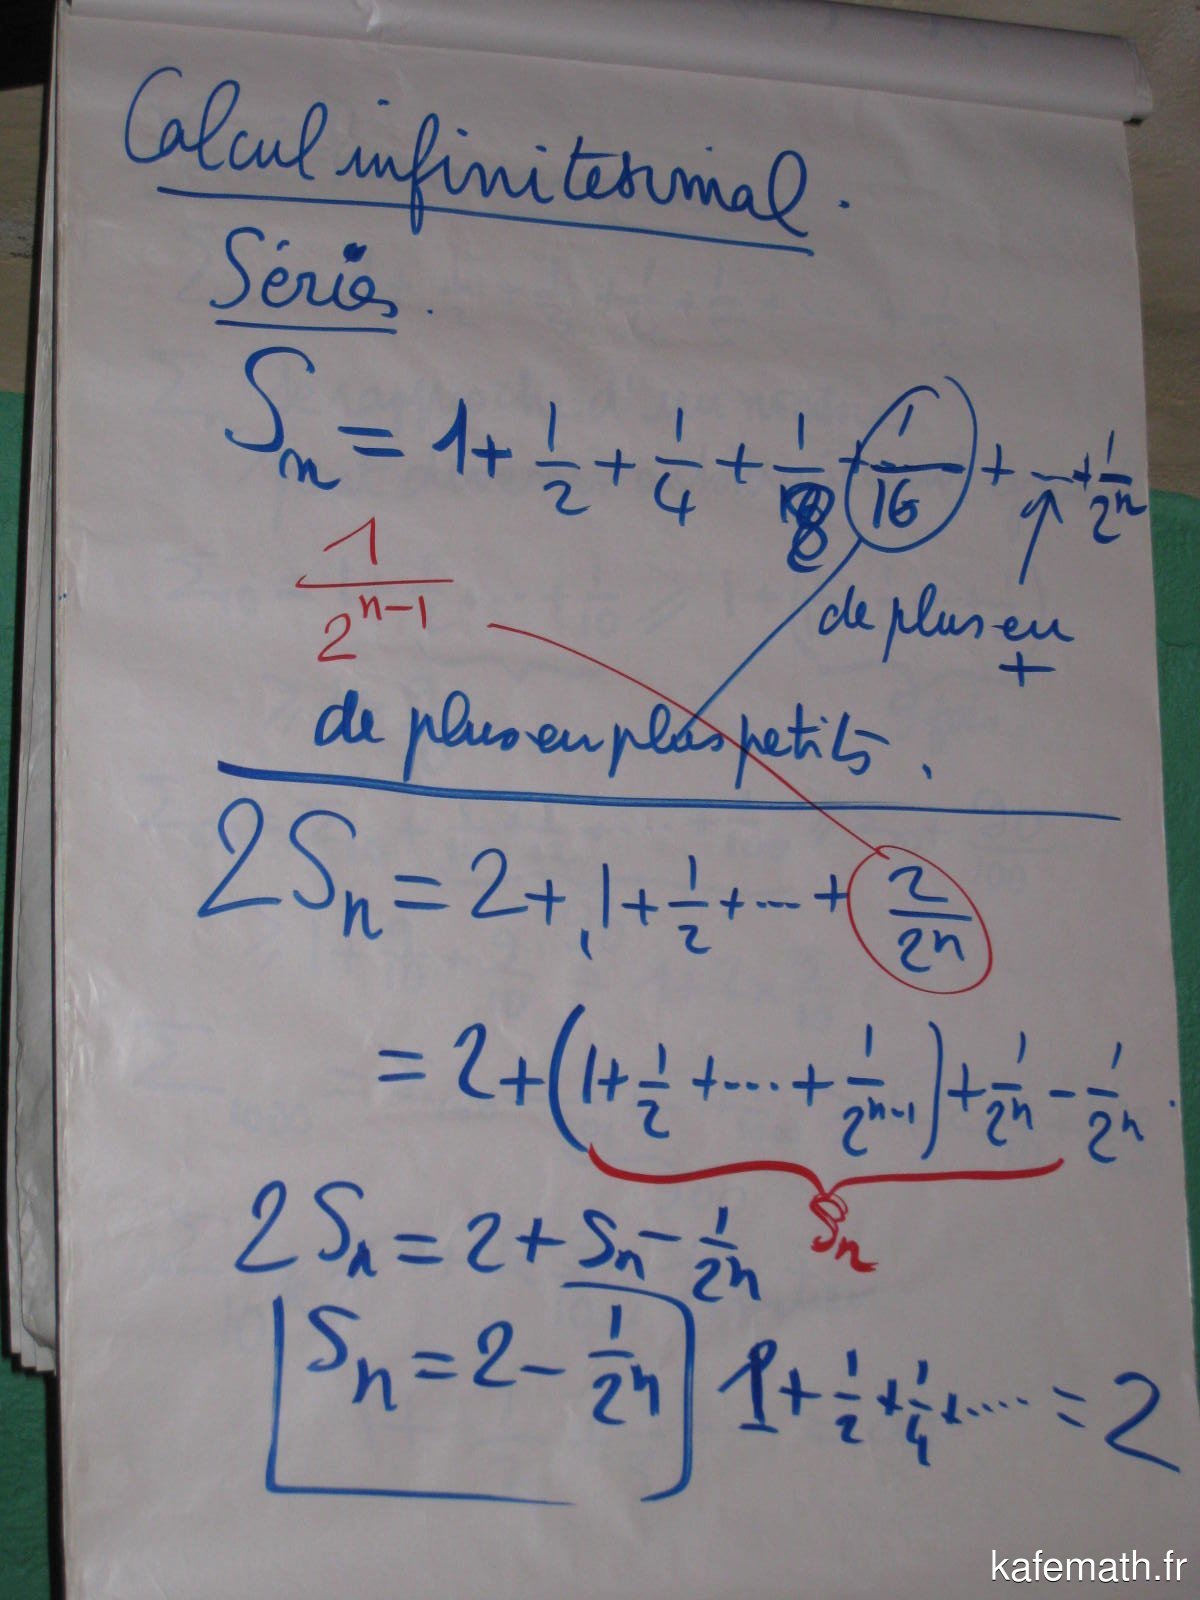 Calcul infinitesimal.
Séries.
Sn = 1 + 1/2 + 1/4 + 1/8 + 1/16 + ... + 1/2^n
1/2^(n-1)
de plus en +
de plus en plus petits.
2Sn = 2 + 1 + 1/2 + ... + 2/2^n
= 2 + (1 + 1/2 + ... + 1/2^(n-1)) + 1/2^n - 1/2^n.
Sn
2Sn = 2 + Sn - 1/2^n
Sn = 2 - 1/2^n
1 + 1/2 + 1/4 + .... = 2
kafemath.fr